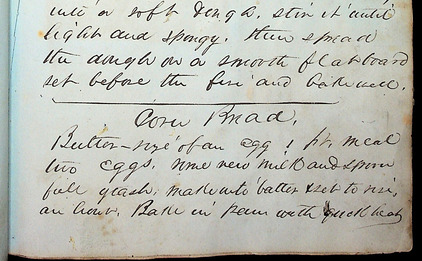 into a soft dough. stir it until
light and spongy. then spread
the dough on a smooth flat board
set before the fire and bake well.
Corn Bread.
Butter-size of an egg 1 pt. meal
two eggs. some new milk and spoon
full yeast, make into batter & set to rise,
an hour. Bake in pan with quick heat